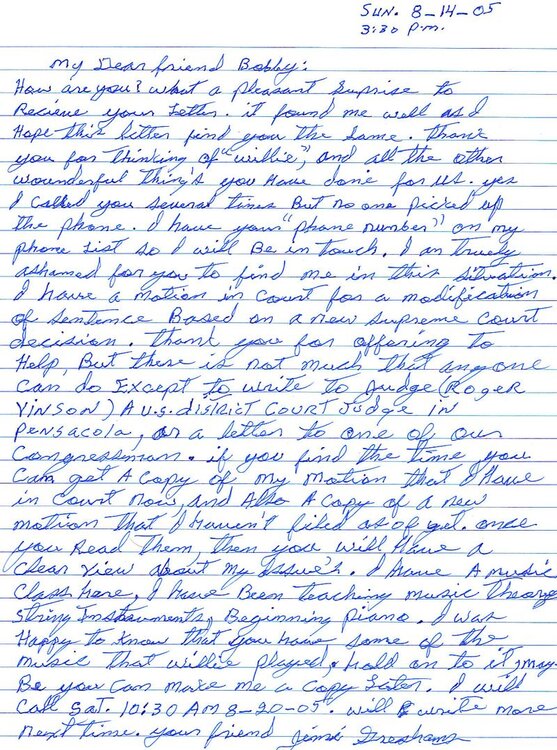 Sun. 8-14-05
3:30 P.m.
My Dear friend Bobby:
How are you? what a pleasant surprise to
Recieve your Letter. it found me well as I
Hope this letter find you the same. Thank
you for Thinking of "willie", and all the other
wounderful thing's you Have done for us. yes
I called you several times But no one picked up
the phone. I have your "phone number" on my
phone List so I will Be in touch. I am truely
ashamed for you to find me in this situation.
I have a motion in Court for a modification
of sentence Based on a new Supreme Court
decision. Thank you for offering to
Help, But there is not much that anyone
can do Except to write to Judge (Roger
Vinson) A U.S. district Court Judge in
Pensacola, or a letter to one of our
Congressman. if you find the time, you
Can get A Copy of my motion that I Have
in Court now, and Also A Copy of a new
motion that I Haven't filed as of yet. once
you Read them, then you will Have a
Clear view about my Issue's. I Have A music
Class here, I have Been teaching music theory
String Instruments, Beginning piano. I was
Happy to know that you have some of the
music that willie played, hold on to it, may
Be you Can make me a Copy Later. I will
Call Sat. 10:30 AM 8-20-05. will write more
next time. your friend